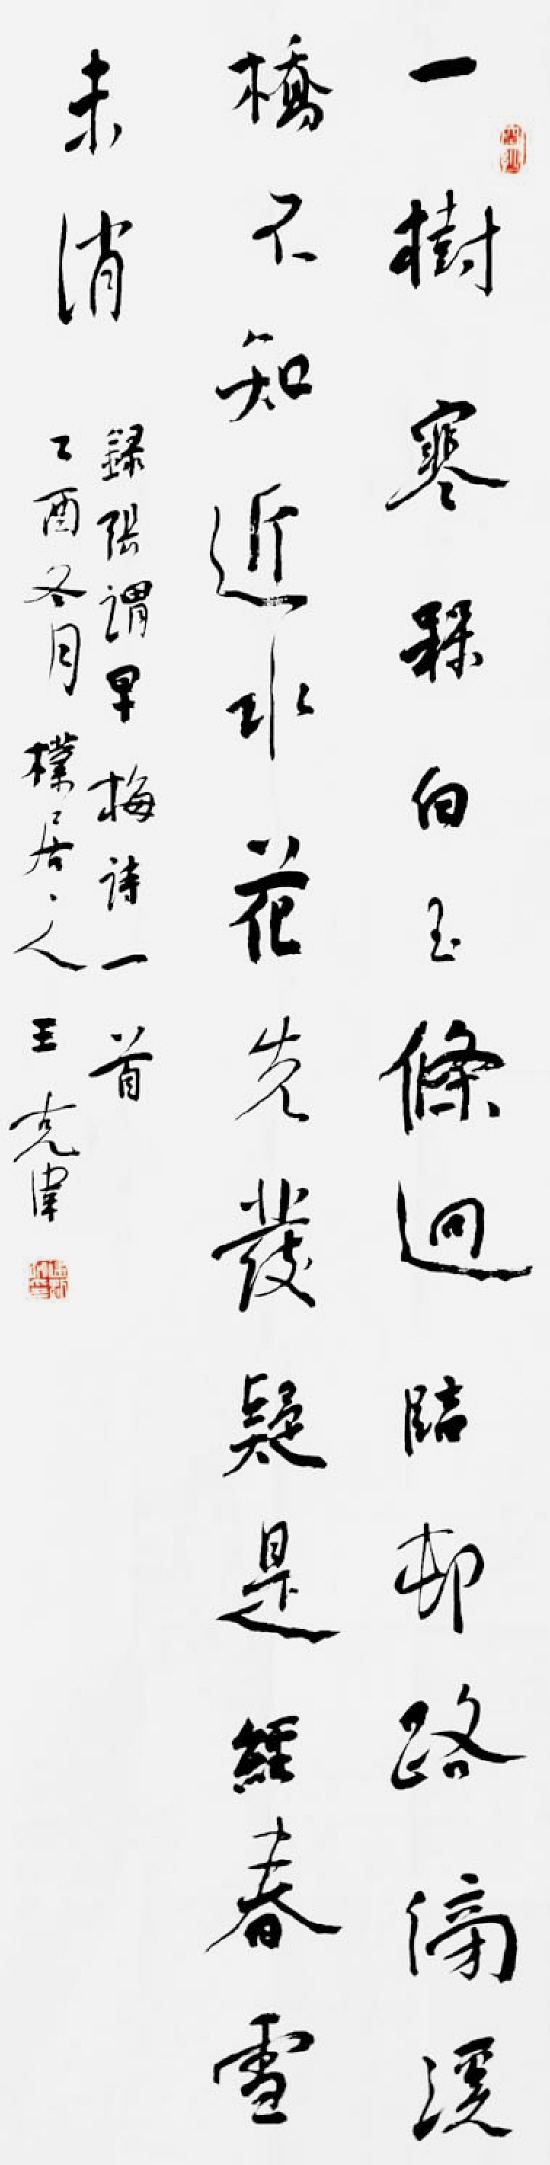 一樹寒槑白玉條逈臨邨路傍溪
橋不知近水花先發疑是經春雪
未消
錄張謂早梅詩一首
乙酉冬月樸居、人王克偉